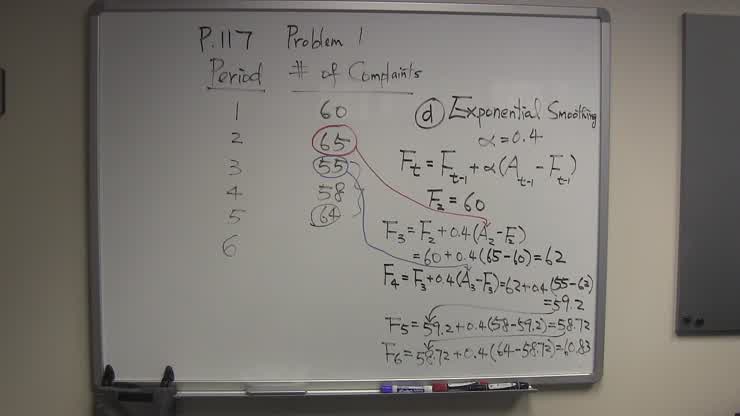 P.117 Problem 1
Period # of Complaints
1 60
2 65
3 55
4 58
5 64
6
d Exponential Smoothing
α=0.4
Ft = Ft-1 + α(At-1 - Ft-1)
F2 = 60
F3 = F2 + 0.4(A2 - F2)
= 60 + 0.4(65 - 60) = 62
F4 = F3 + 0.4(A3 - F3) = 62 + 0.4(55 - 62)
= 59.2
F5 = 59.2 + 0.4(58 - 59.2) = 58.72
F6 = 58.72 + 0.4(64 - 58.72) = 60.83